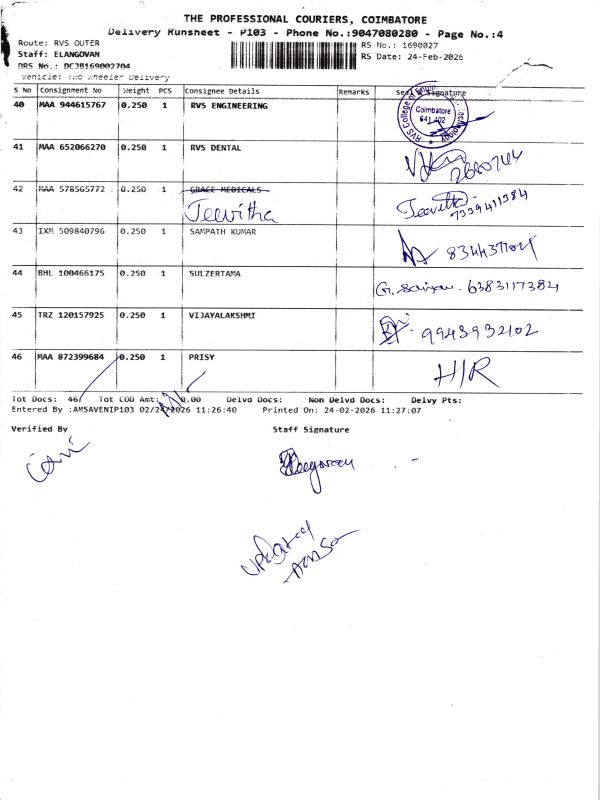 THE PROFESSIONAL COURIERS, COIMBATORE
Delivery Runsheet - P103 - Phone No.:9047080280 - Page No.:4
Route: RVS OUTER RS No.: 1690027
Staff: ELANGOVAN RS Date: 24-Feb-2026
DRS No.: DCJB169002704
Vehicle: Two Wheeler Delivery
S No Consignment No Weight PCS Consignee Details Remarks Seal & Signature
40 MAA 944615767 0.250 1 RVS ENGINEERING
RVS College of
Coimbatore
641 402
Technology
41 MAA 652066270 0.250 1 RVS DENTAL
42 MAA 578565772 0.250 1 GRACE MEDICALS
Jeevitha Jeevitha
7339411384
43 IXM 509840796 0.250 1 SAMPATH KUMAR
44 BHL 100466175 0.250 1 SULZERTAMA
6383117384
45 TRZ 120157925 0.250 1 VIJAYALAKSHMI
9943932102
46 MAA 872399684 0.250 1 PRISY
H/R
Tot Docs: 46 Tot COD Amt: 0.00 Delvd Docs: Non Delvd Docs: Delvy Pts:
Entered By :AMSAVENIP103 02/24/2026 11:26:40 Printed On: 24-02-2026 11:27:07
Verified By Staff Signature
Updated